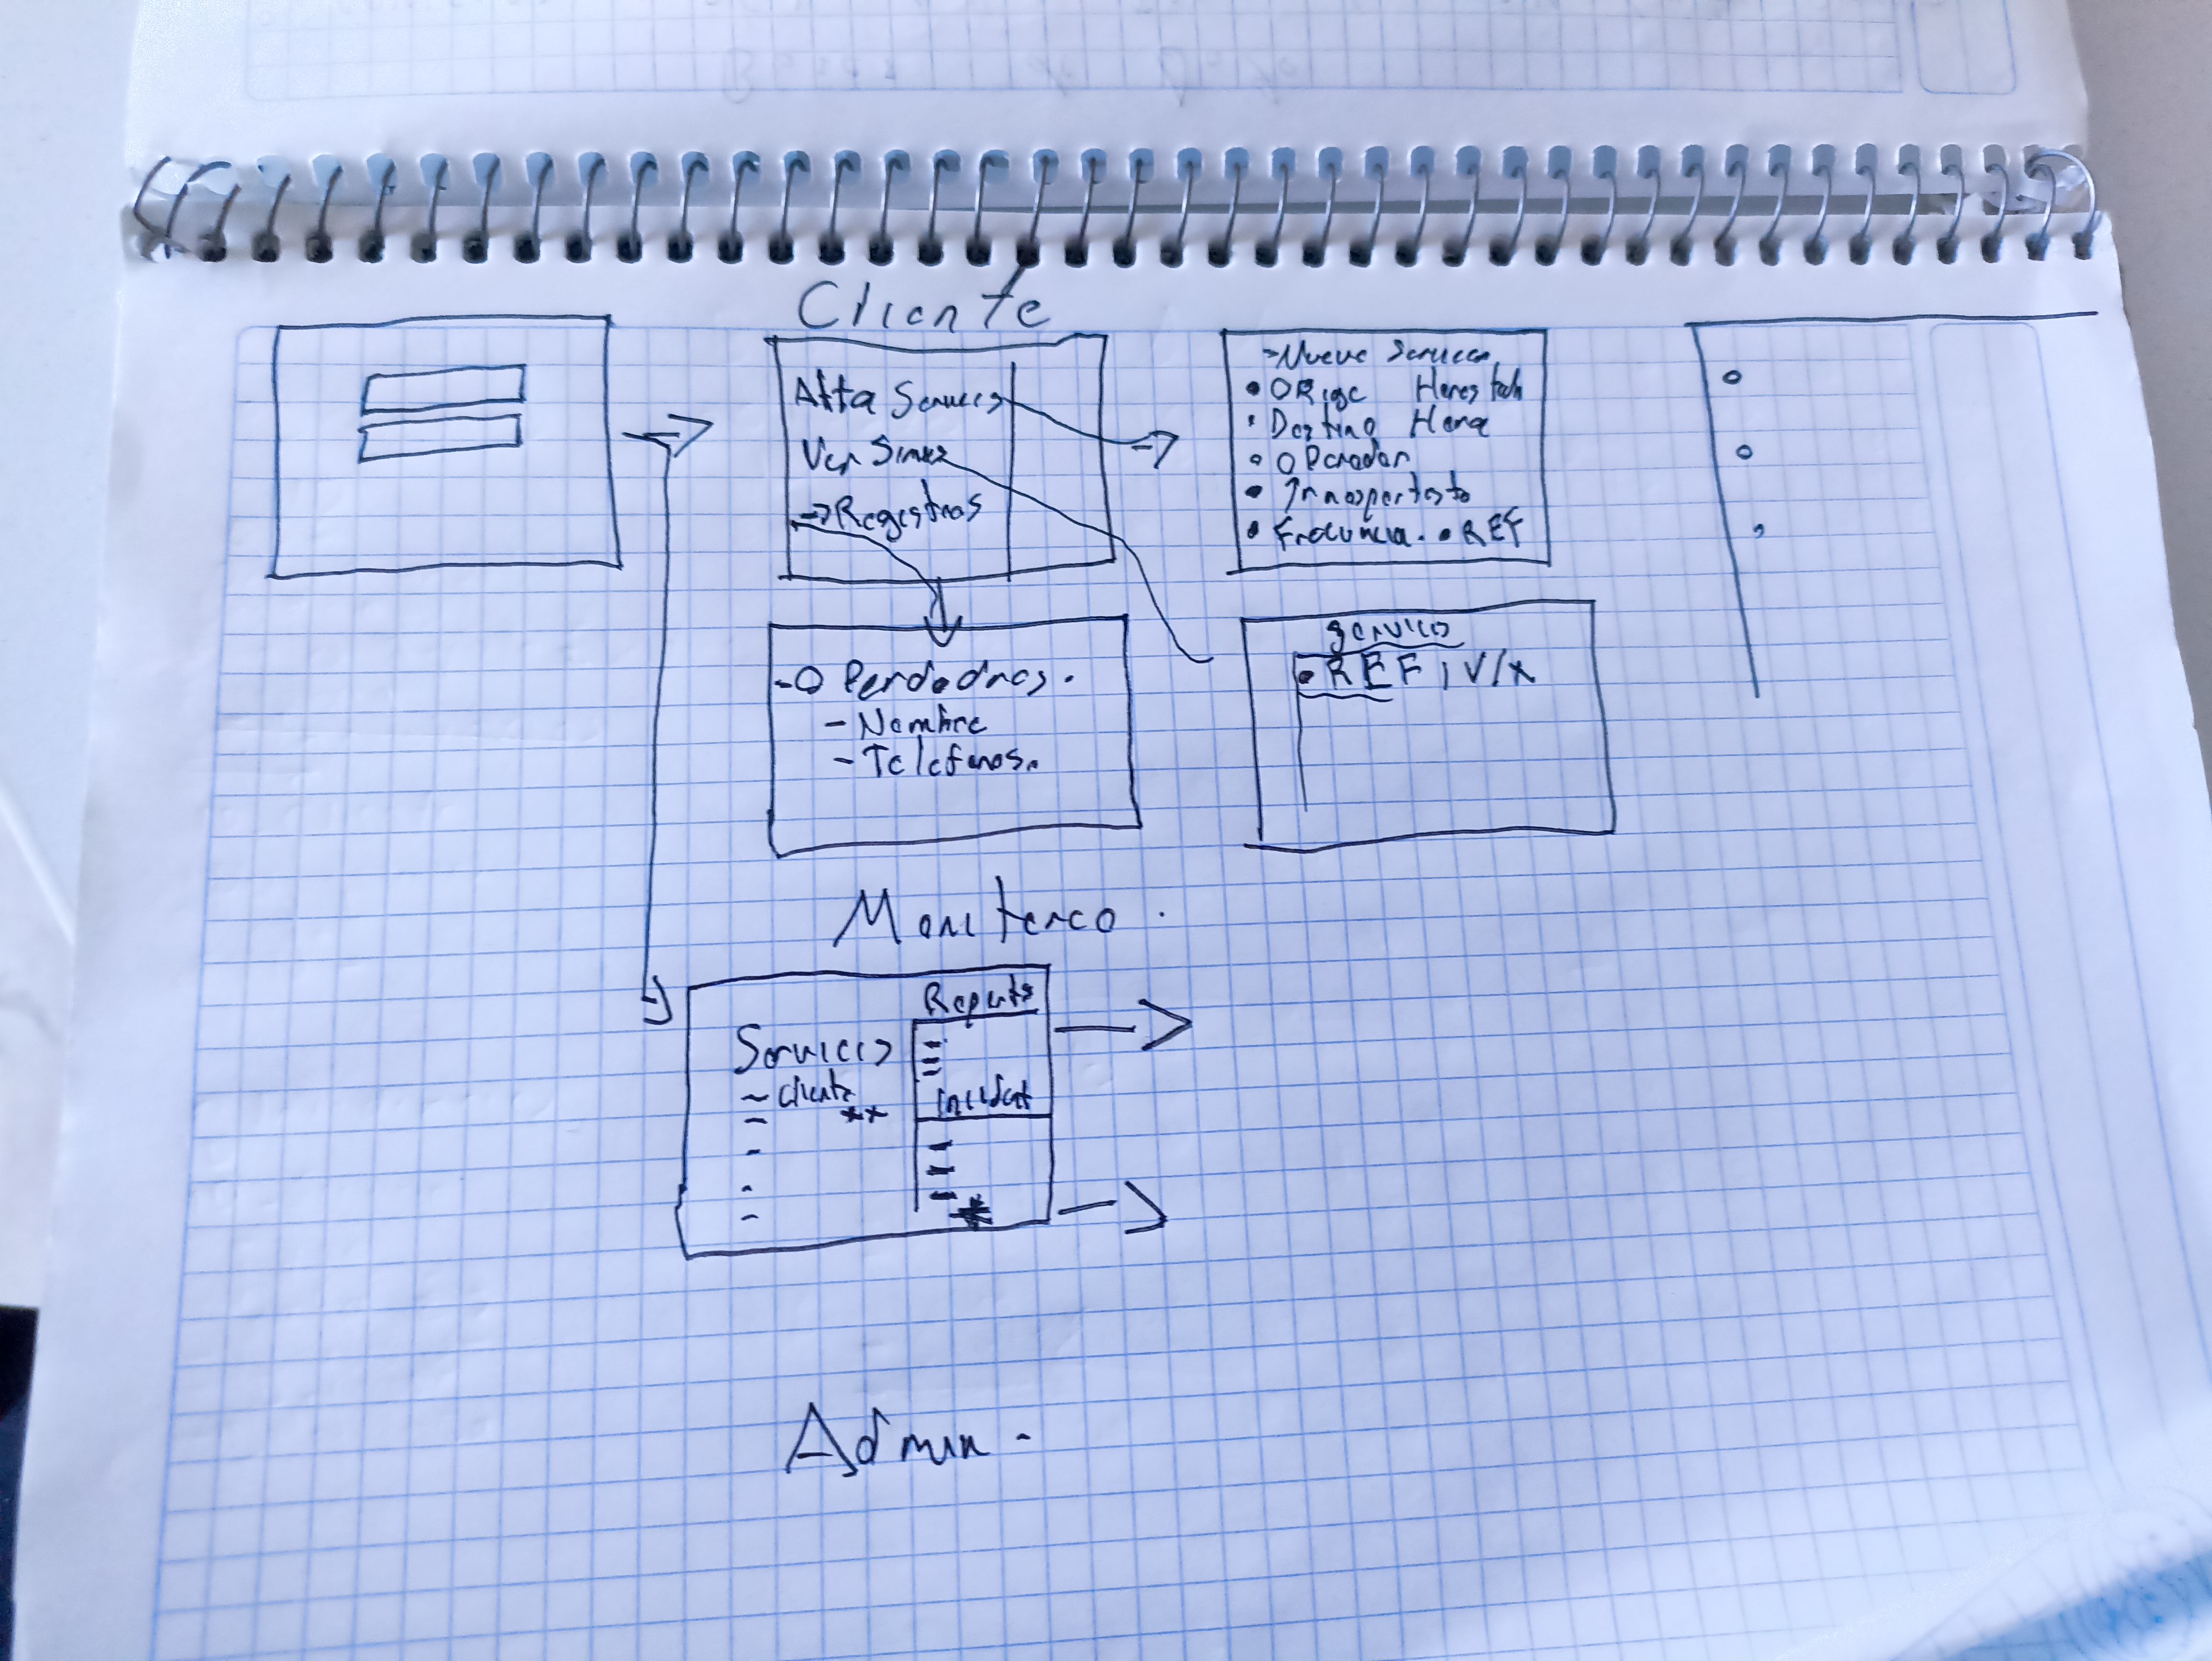 Cliente
Alta Servicio
Ver
-> Registros
> Nuevo Servicio
• ORige Hora
• Destino Hora
• Operador
• Transportista
• Frecuencia. • REF
- Operadores.
- Nombre
- Telefonos.
Servicios
• REF, V/X
Monitoreo
Reports
Servicios
- cliente
**
incident
Admin -